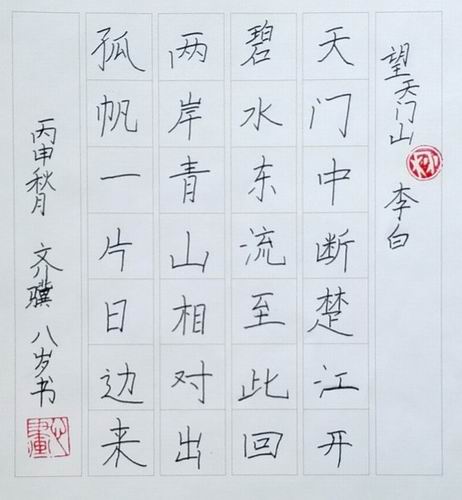 望天门山 李白
天门中断楚江开
碧水东流至此回
两岸青山相对出
孤帆一片日边来
丙申秋月 齐骥 八岁书